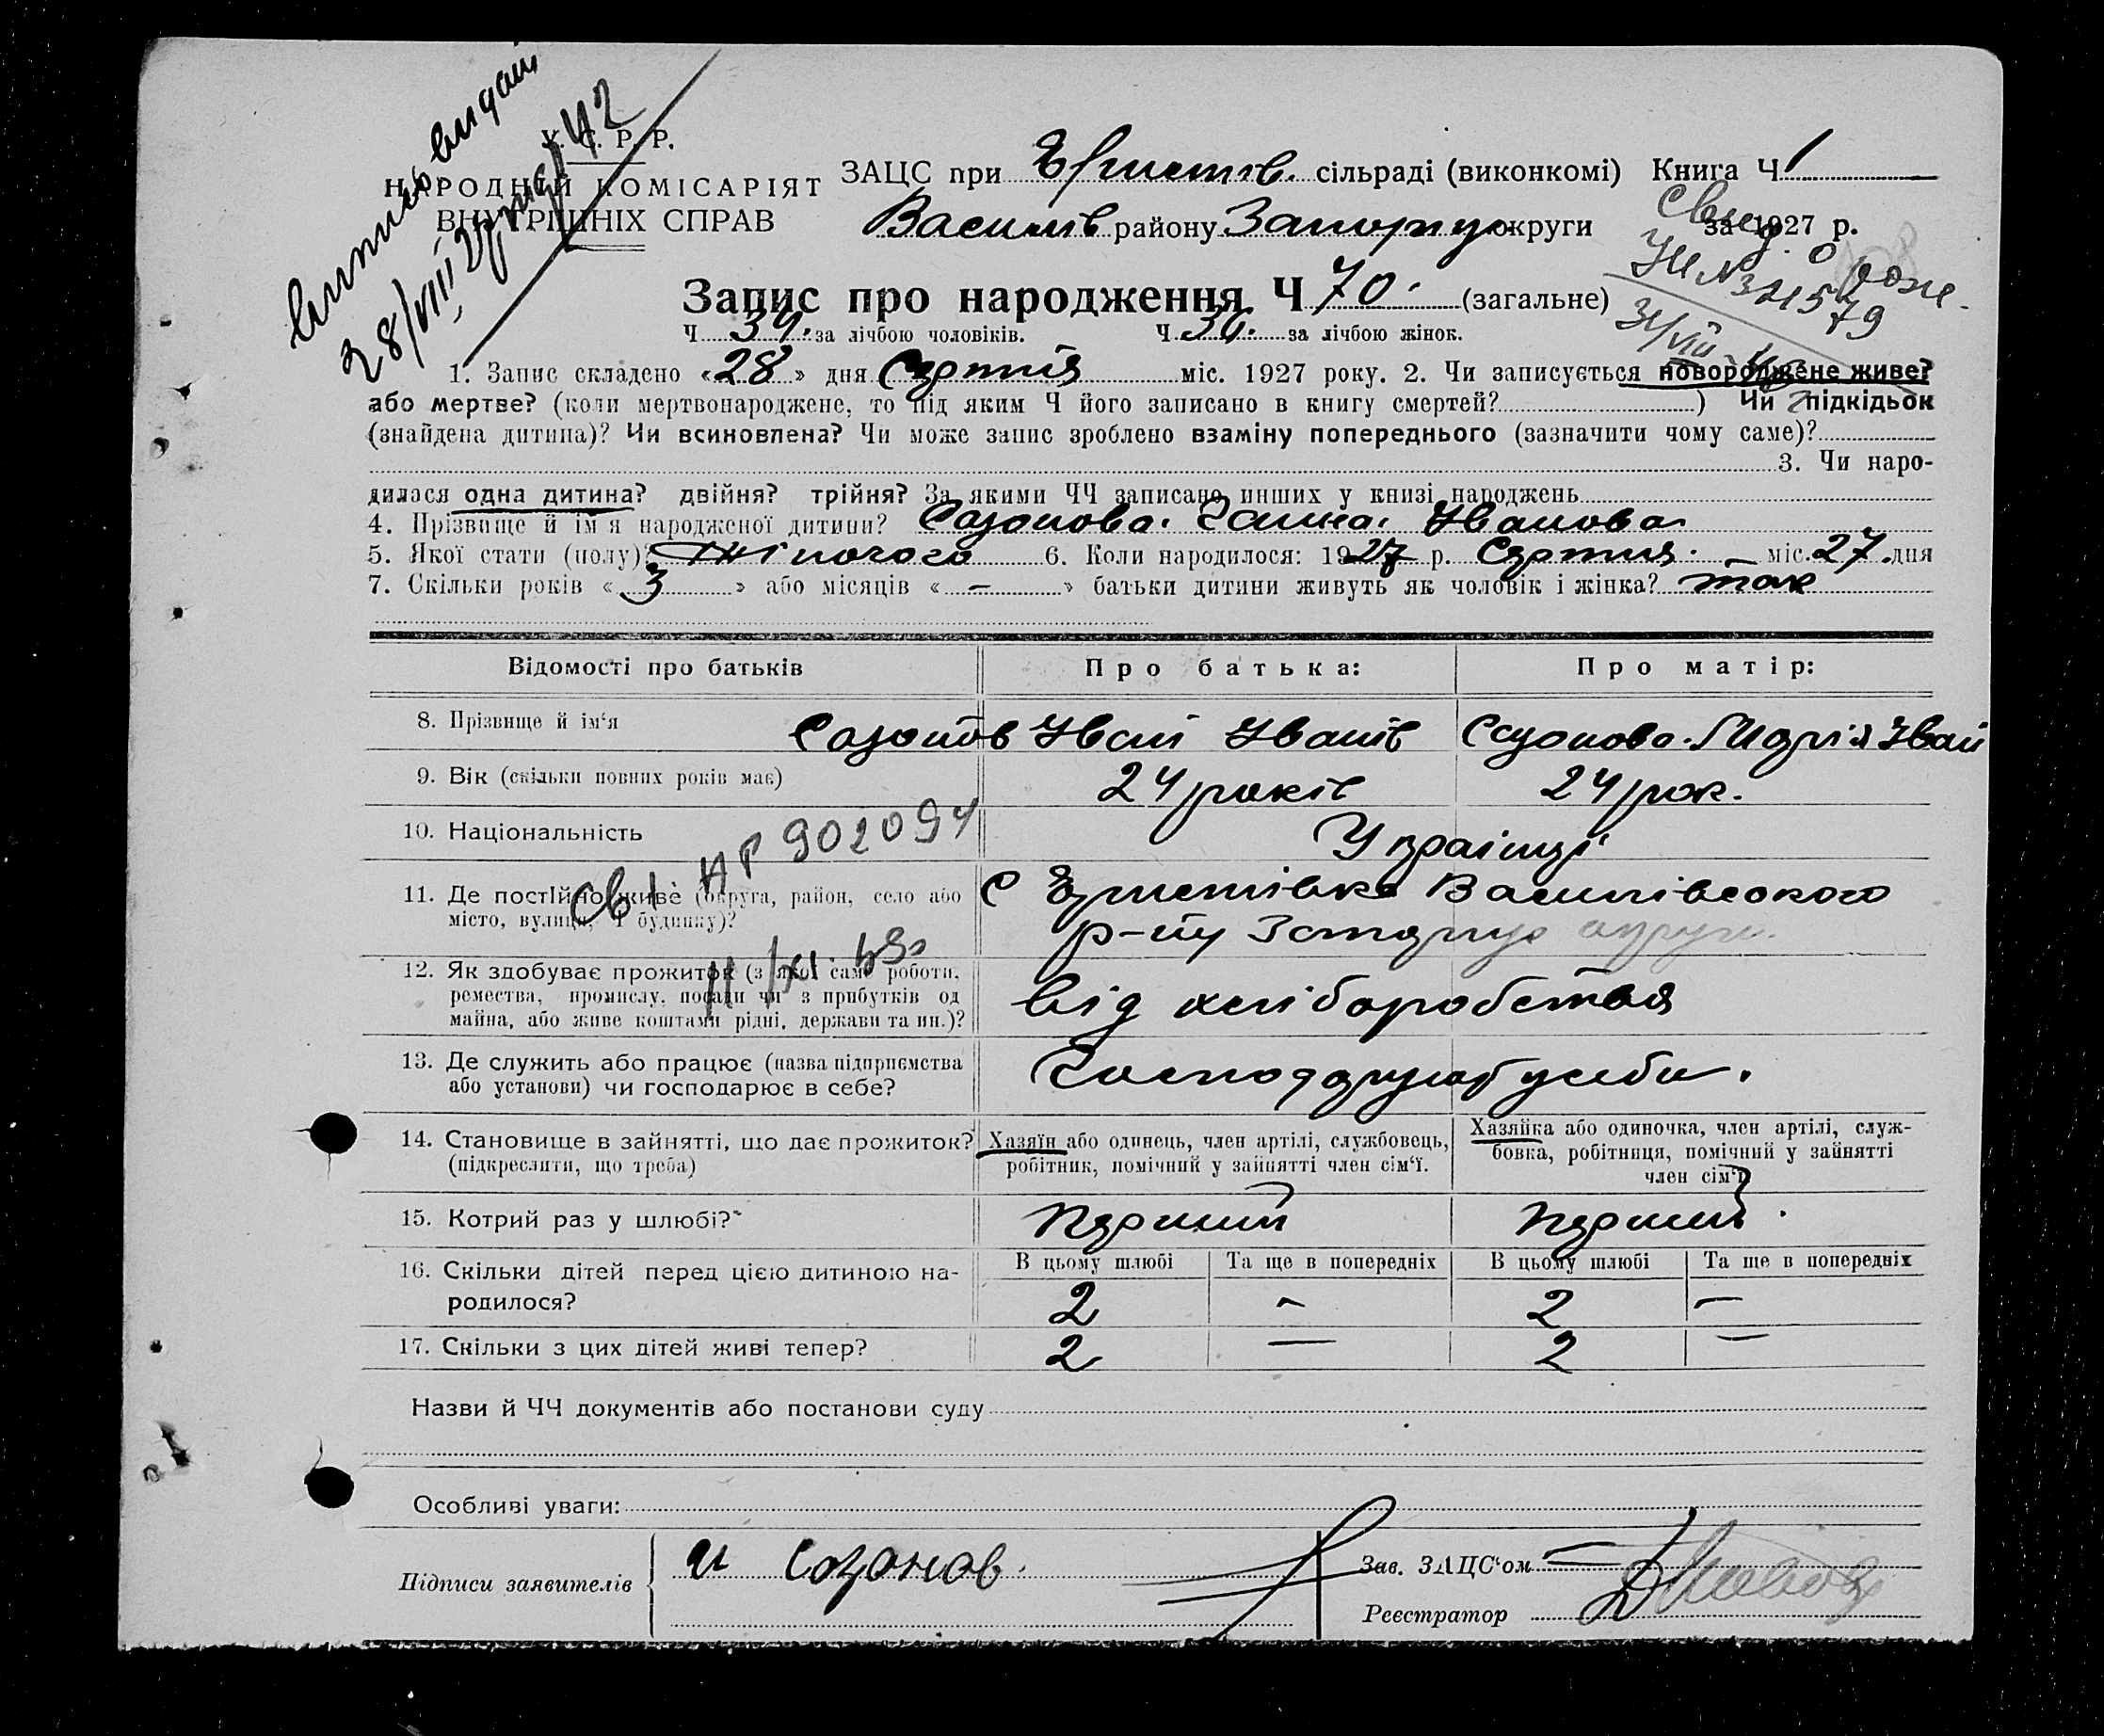 Выпись видан
28/VIII
У. С. Р. Р.
НАРОДНІЙ КОМІСАРІЯТ
ВНУТРІШНІХ СПРАВ
ЗАЦС при Єристів. сільраді (виконкомі) Книга Ч 1
Василів району Запоризь округи за 1927 р.
Свид. о рожд.
Запис про народження Ч 70. (загальне)
Ч 34. за лічбою чоловіків. Ч 36. за лічбою жінок.
1. Запис складено «28» дня Серпня міс. 1927 року. 2. Чи записується новороджене живе?
або мертве? (коли мертвонароджене, то під яким Ч його записано в книгу смертей? ) Чи підкідьок
(знайдена дитина)? Чи всиновлена? Чи може запис зроблено взаміну попереднього (зазначити чому саме)?
3. Чи наро-
дилася одна дитина? двійня? трійня? За якими ЧЧ записано инших у книзі народжень
4. Прізвище й ім'я народженої дитини? Сазонова. Ганна. Іванова
5. Якої стати (полу)? Жіночого 6. Коли народилося: 1927 р. Серпня. – міс. 27. дня
7. Скільки років «3» або місяців «–» батьки дитини живуть як чоловік і жінка? так
Відомості про батьків Про батька: Про матір:
8. Прізвище й ім'я Сазонов Іван Іванів Сазонова. Марія Іван
9. Вік (скільки повних років має) 24 років 24 рок.
10. Національність Українці
Св. НР 902094
11. Де постійно живе (округа, район, село або С Єристівка Василівського
місто, вулиця, Ч будинку)? р-ну Запориз округи.
12. Як здобуває прожиток (з якої саме роботи, від хліборобства
ремества, промислу, посади чи з прибутків од
майна, або живе коштами рідні, держави та ин.)?
11/XI
13. Де служить або працює (назва підприємства Господарюють у себе.
або установи) чи господарює в себе?
14. Становище в зайнятті, що дає прожиток? Хазяїн або одинець, член артілі, службовець, Хазяйка або одиночка, член артілі, служ-
(підкреслити, що треба) робітник, помічний у зайнятті член сім'ї. бовка, робітниця, помічний у зайнятті
член сім'ї
15. Котрий раз у шлюбі? Перший перший.
16. Скільки дітей перед цією дитиною на- В цьому шлюбі Та ще в попередніх В цьому шлюбі Та ще в попередніх
родилося? 2 – 2 –
17. Скільки з цих дітей живі тепер? 2 – 2 –
Назви й ЧЧ документів або постанови суду
Особливі уваги:
Підписи заявителів И Созонов. Зав. ЗАЦС'ом
Реєстратор